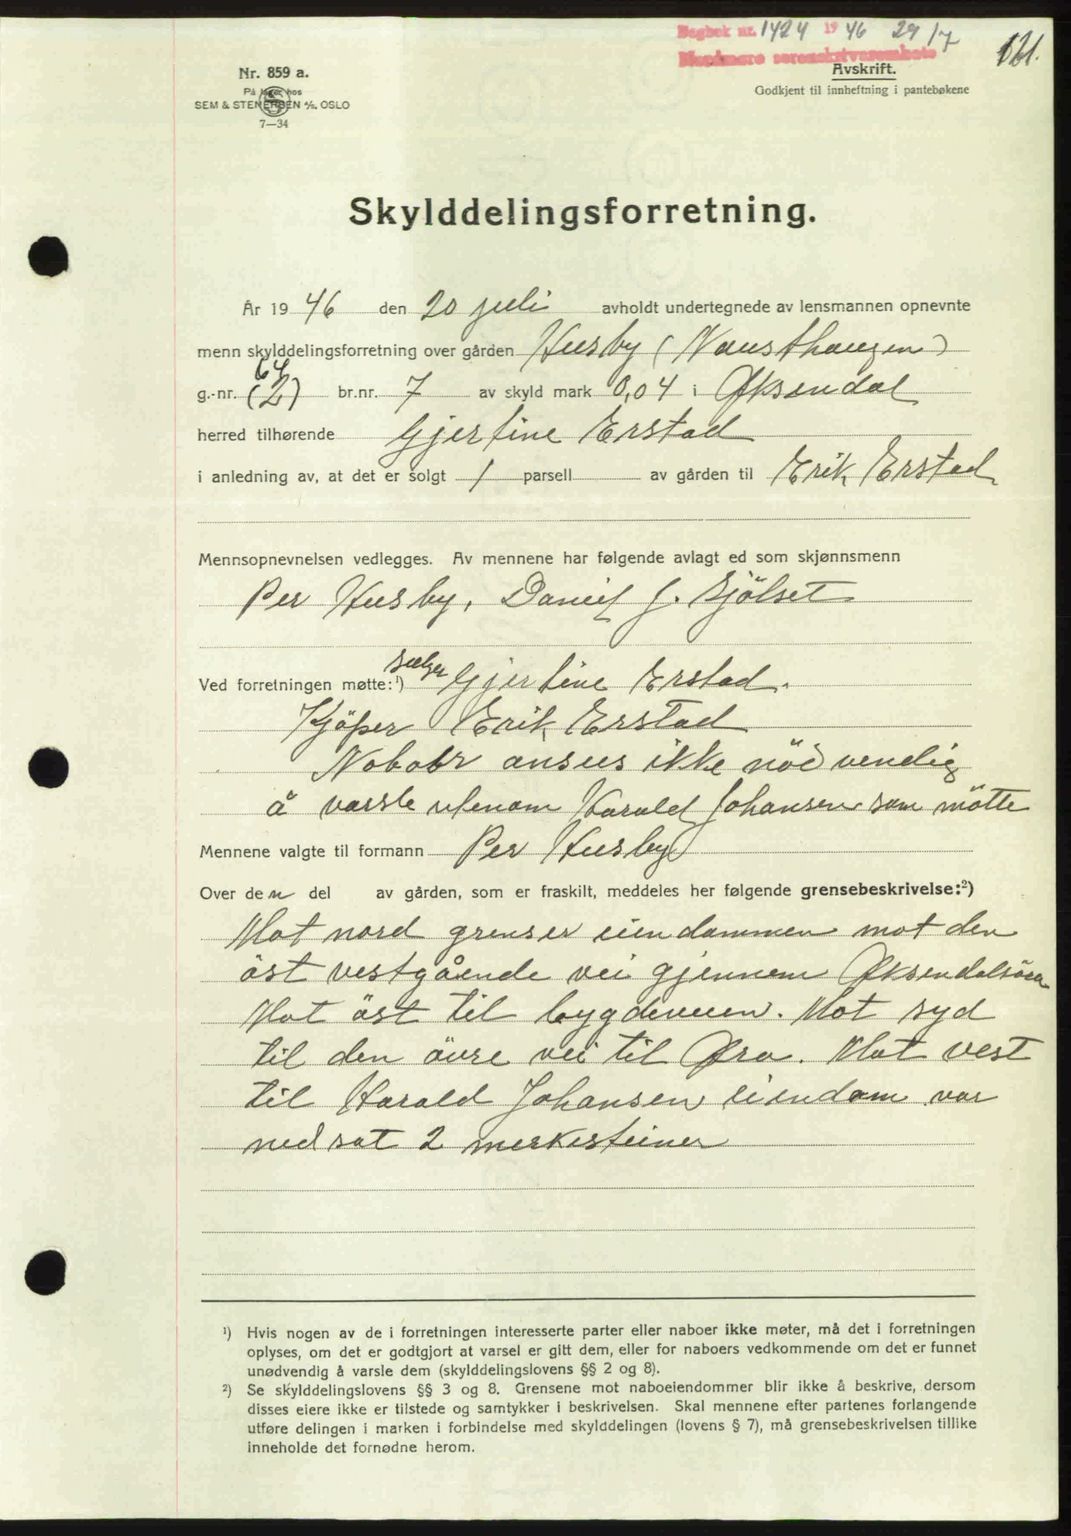 Dagbok nr. 1424 1946 29/7
Nordmøre sorenskriverembete
121.
Nr. 859 a.
På lager hos
SEM & STENERSEN A/S, OSLO
7—34
Avskrift.
Godkjent til innheftning i pantebøkene
Skylddelingsforretning.
År 1946 den 20 juli avholdt undertegnede av lensmannen opnevnte
menn skylddelingsforretning over gården Husby (Nausthaugen)
64
g.-nr. (2) br.nr. 7 av skyld mark 0,04 i Øksendal
herred tilhørende Gjertine Erstad
i anledning av, at det er solgt 1 parsell av gården til Erik Erstad
Mennsopnevnelsen vedlegges. Av mennene har følgende avlagt ed som skjønnsmenn
Per Husby, Daniel J. Sjölset
Ved forretningen møtte:¹) Selger Gjertine Erstad.
Kjöper Erik Erstad
Naboer ansees ikke nödvendig
å varsle utenom Harald Johansen som mötte
Mennene valgte til formann Per Husby
Over den del av gården, som er fraskilt, meddeles her følgende grensebeskrivelse:²)
Mot nord grenser eiendommen mot den
öst vestgående vei gjennem Øksendalsöra
Mot öst til bygdeveien. Mot syd
til den övre vei til Øra. Mot vest
til Harald Johansen eiendom var
nedsat 2 merkesteiner
¹) Hvis nogen av de i forretningen interesserte parter eller naboer ikke møter, må det i forretningen
oplyses, om det er godtgjort at varsel er gitt dem, eller for naboers vedkommende om det er funnet
unødvendig å varsle dem (skylddelingslovens §§ 2 og 8).
²) Se skylddelingslovens §§ 3 og 8. Grensene mot naboeiendommer blir ikke å beskrive, dersom
disses eiere ikke er tilstede og samtykker i beskrivelsen. Skal mennene efter partenes forlangende
utføre delingen i marken i forbindelse med skylddelingen (lovens § 7), må grensebeskrivelsen tillike
inneholde det fornødne herom.